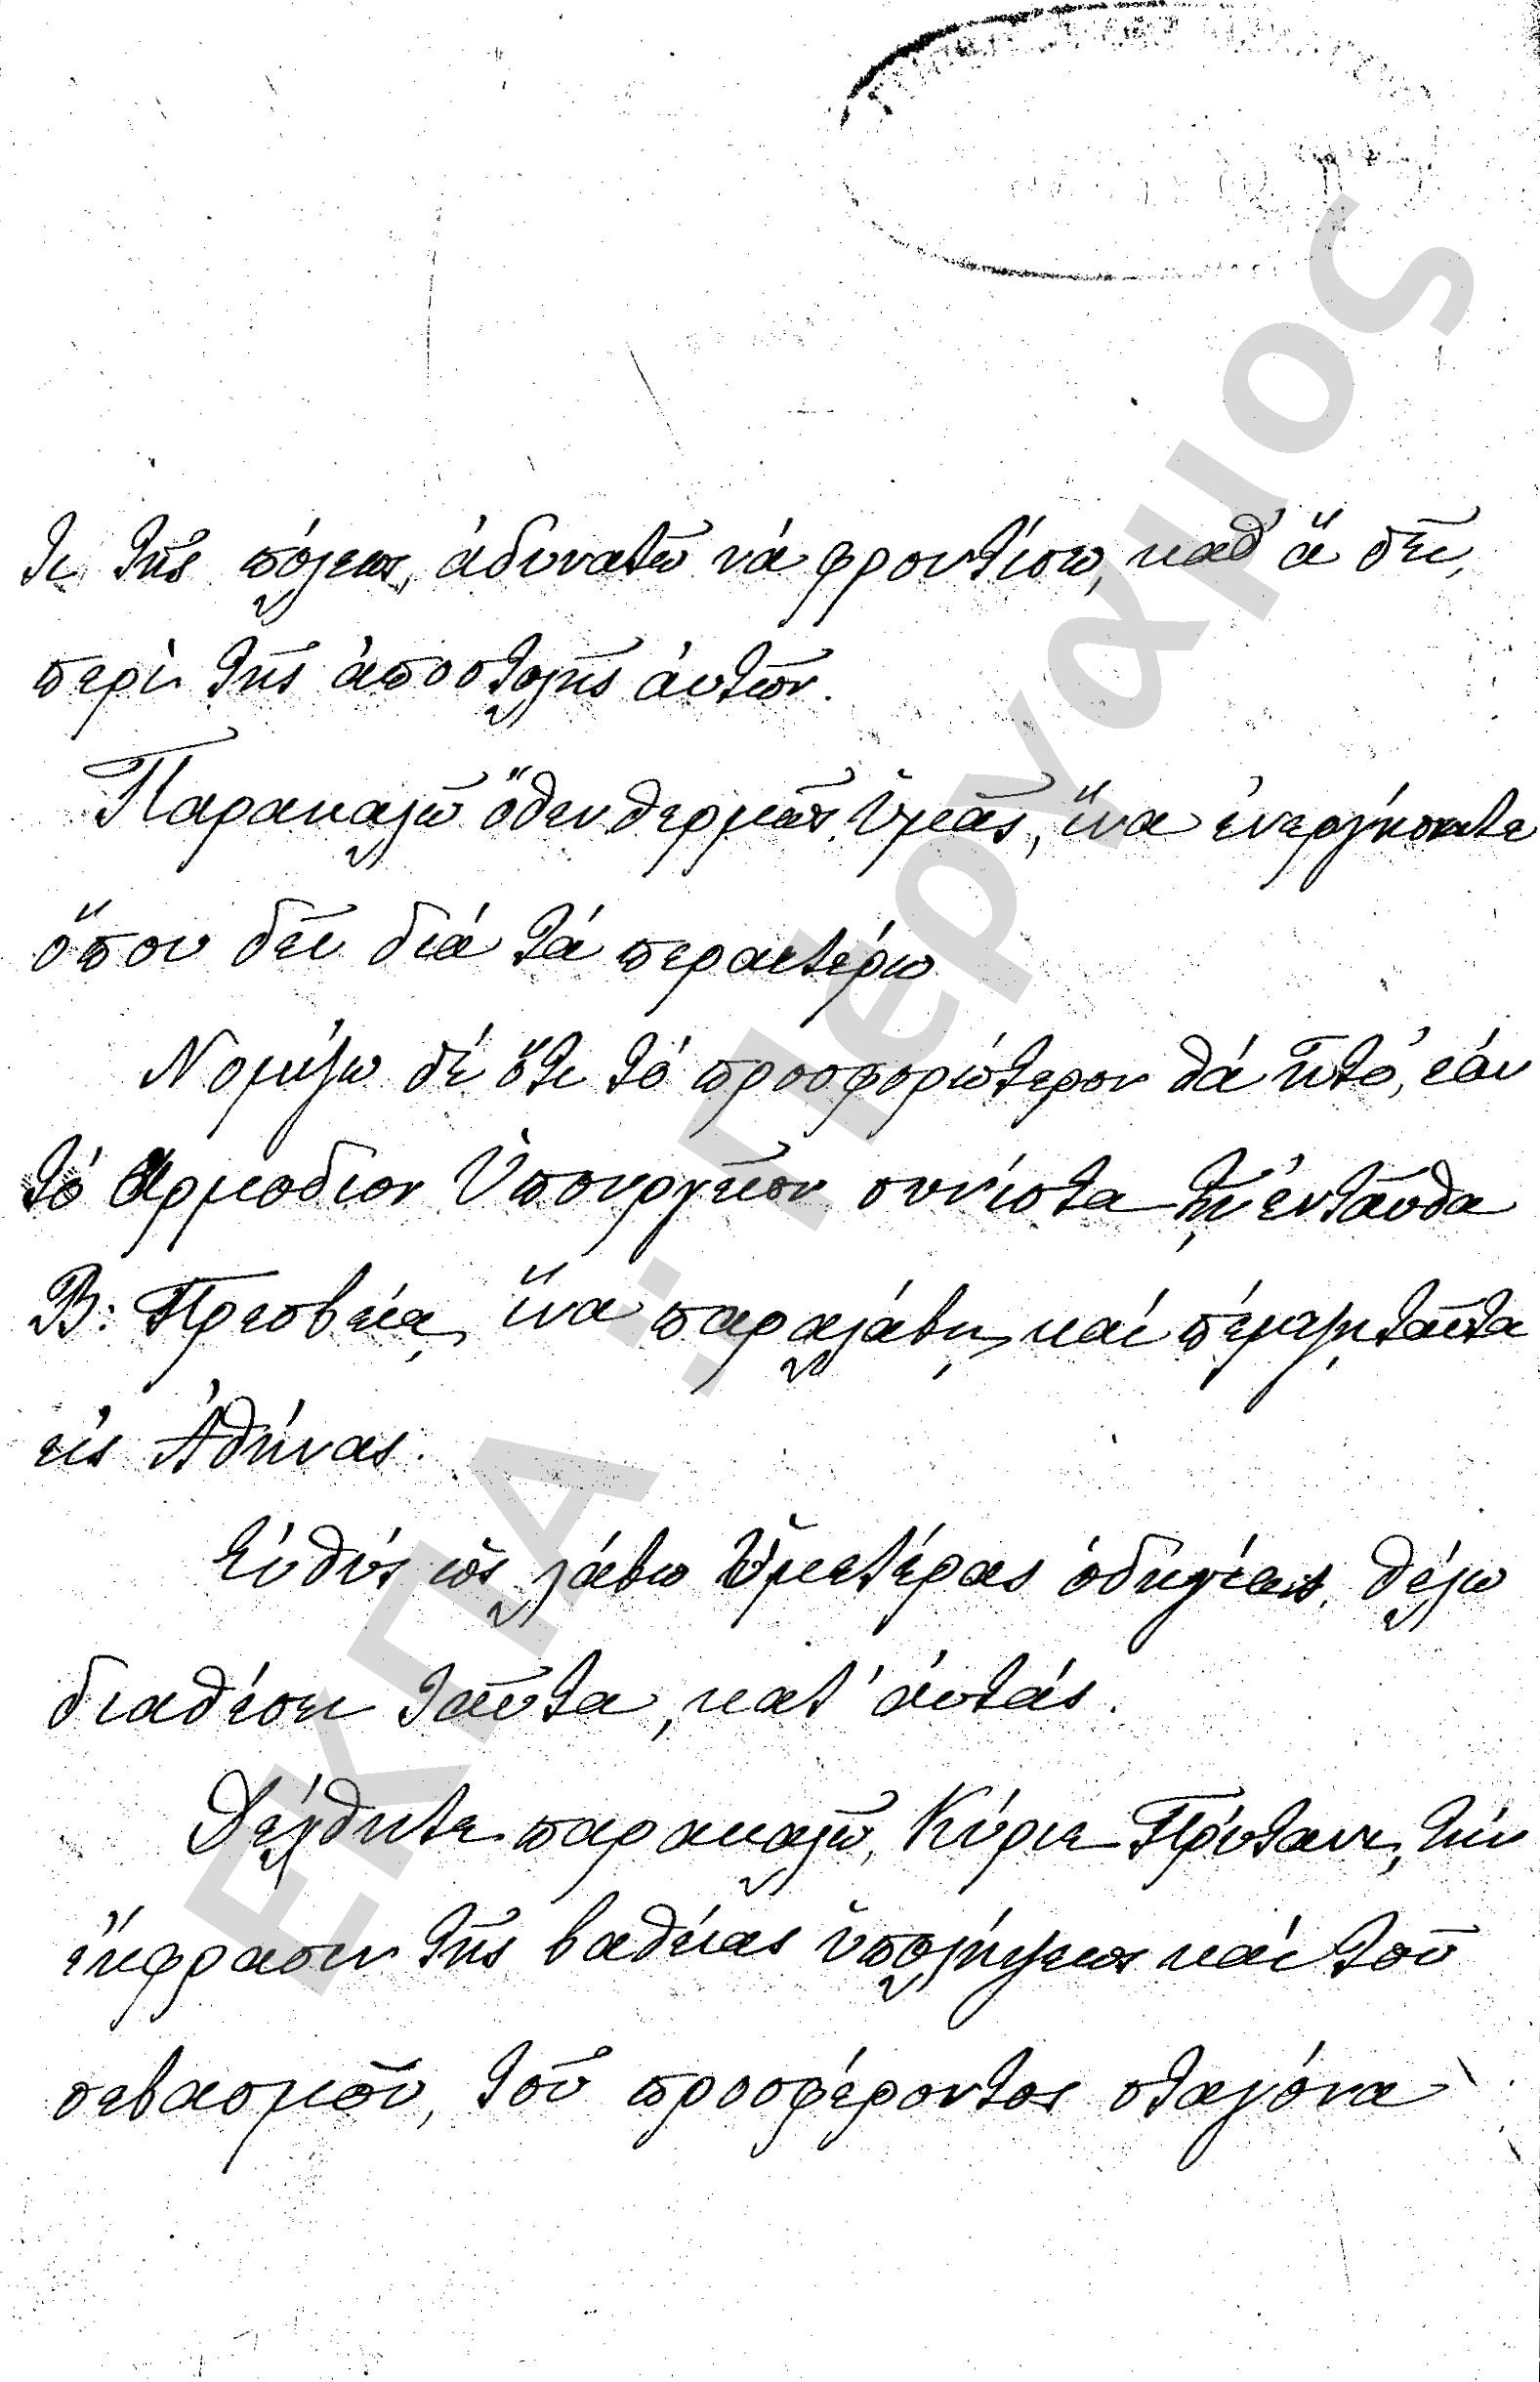 τι τῆς πόλεως, ἀδυνατῶ νά φροντίσω, καθ' ἅ δεῖ,
περὶ τῆς ἀποστολῆς ἀυτῶν.
Παρακαλῶ ὅθεν θερμῶς Ὑμᾶς, ἵνα ἐνεργήσητε
ὅπου δεῖ διά τά περαιτέρω
Νομίζω δέ ὅτι τό προσφορώτερον θά ἦτο, ἐάν
τό Ἁρμόδιον Ὑπουργεῖον συνίστα τῇ ἐνταῦθα
Β: Πρεσβείᾳ, ἵνα παραλάβῃ καί πέμψῃ ταῦτα
εἰς Ἀθήνας.
Εὐθύς ὡς λάβω Ὑμετέρας ὁδηγίας, θέλω
διαθέσει ταῦτα, κατ' ἀυτάς.
Δέχθητε παρακαλῶ, Κύριε Πρύτανι, τήν
ἔκφρασιν τῆς βαθείας ὑπολήψεως καί τοῦ
σεβασμοῦ, τοῦ προσφέροντος σταγόνα
ΕΚΠΑ :: Πέργαμος